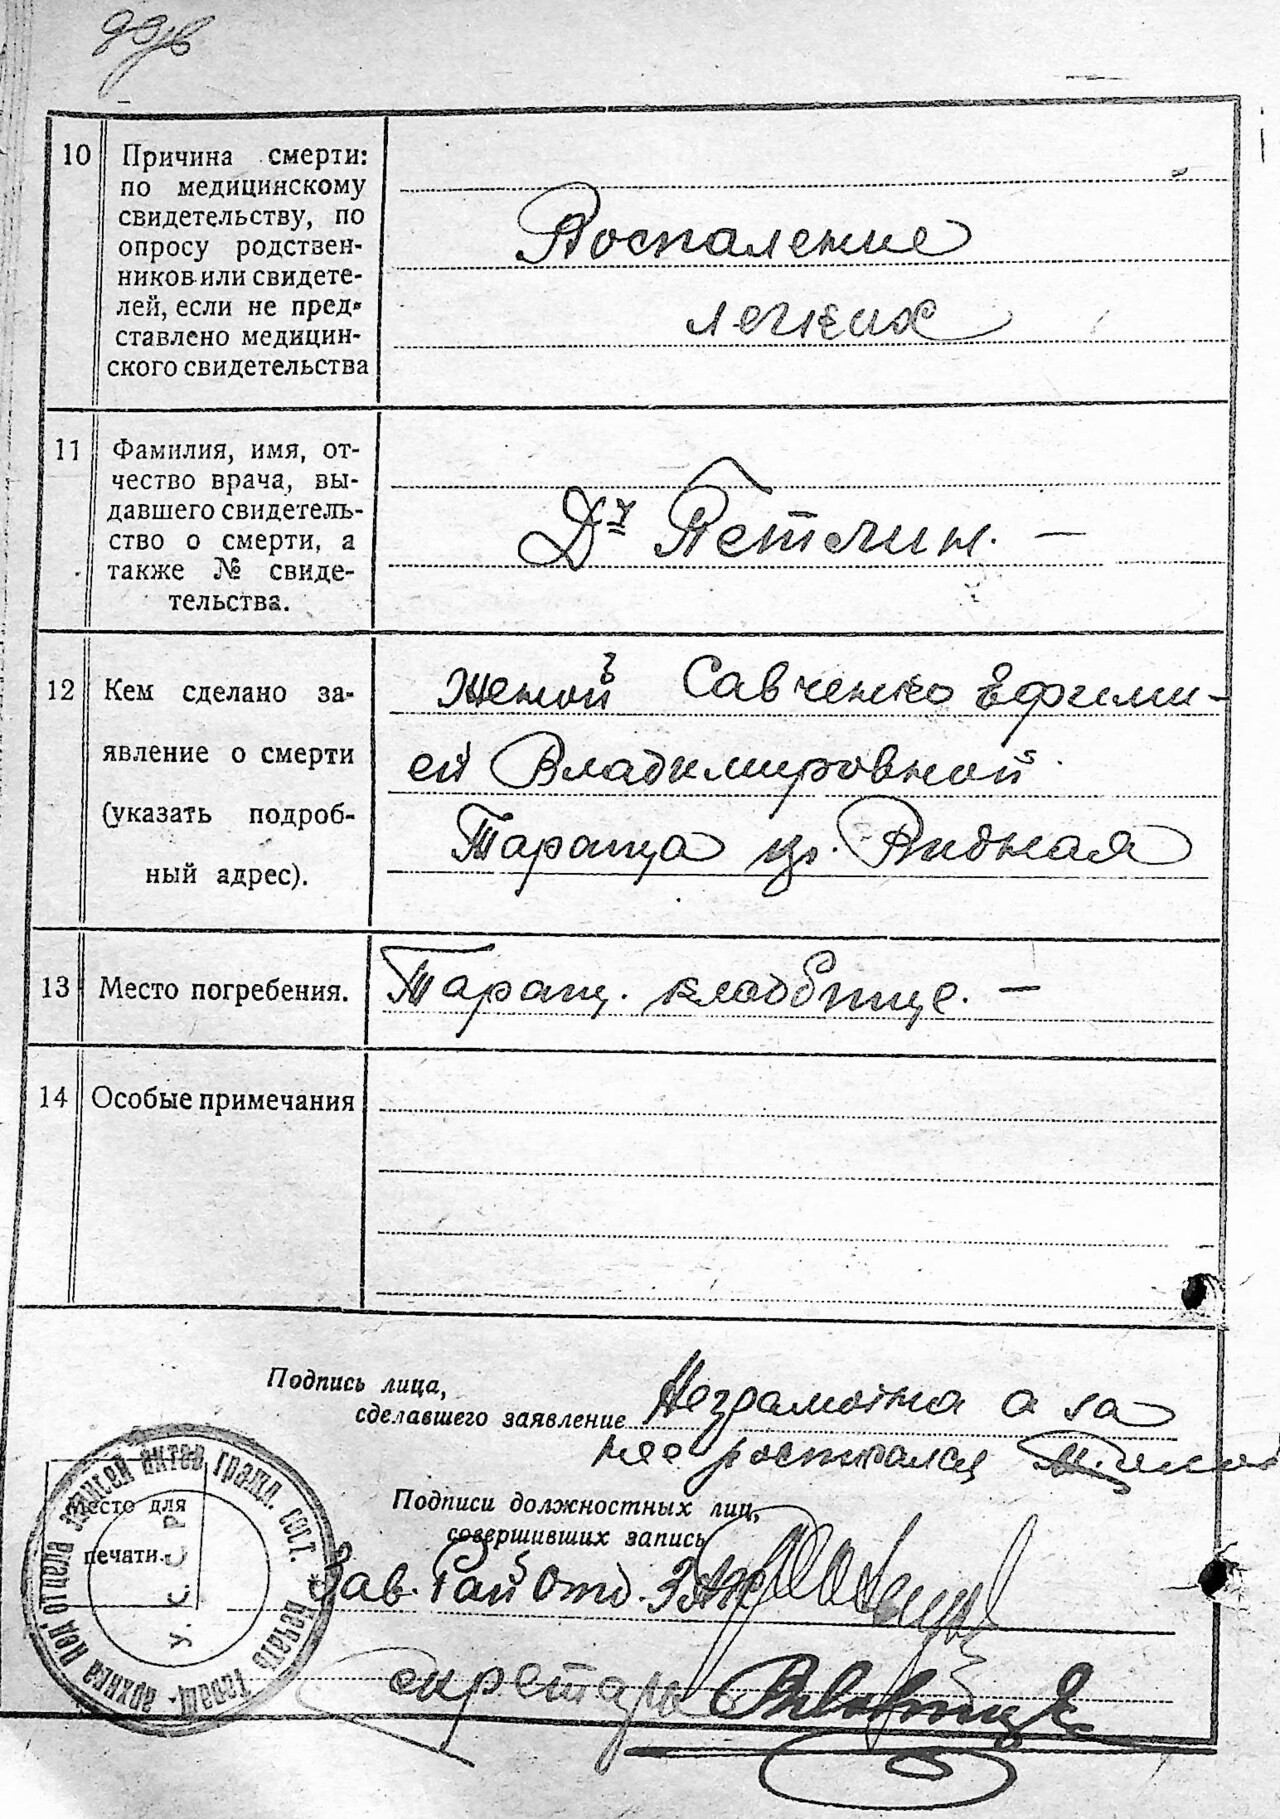 10 Причина смерти:
по медицинскому
свидетельству, по
опросу родствен-
ников или свидете-
лей, если не пред-
ставлено медицин-
ского свидетельства
Воспаление
легких
11 Фамилия, имя, от-
чество врача, вы-
давшего свидетель-
ство о смерти, а
также № свиде-
тельства.
Dr Петлин. —
12 Кем сделано за-
явление о смерти
(указать подроб-
ный адрес).
Женой Савченко Ефими-
ей Владимировной
Тараща ул. Видная
13 Место погребения.
Таращ. кладбище. —
14 Особые примечания
Подпись лица,
сделавшего заявление
Неграмотна а за
нее росписался
Подписи должностных лиц,
совершивших запись
Зав. Рай Отд. ЗАГС
секретарь
Место для
печати.
У. С. С. Р.
записей актов гражд. сост.
Печать